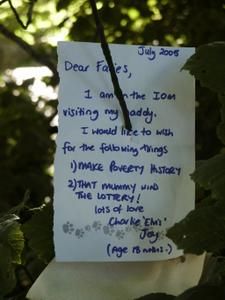 July 2005
Dear Faries,
I am in the IOM
visiting my daddy.
I would like to wish
for the following things
1) MAKE POVERTY HISTORY
2) THAT MUMMY WINS
THE LOTTERY!
lots of love
Charlie 'Elvis'
Joy
(Age 18 mnths.)